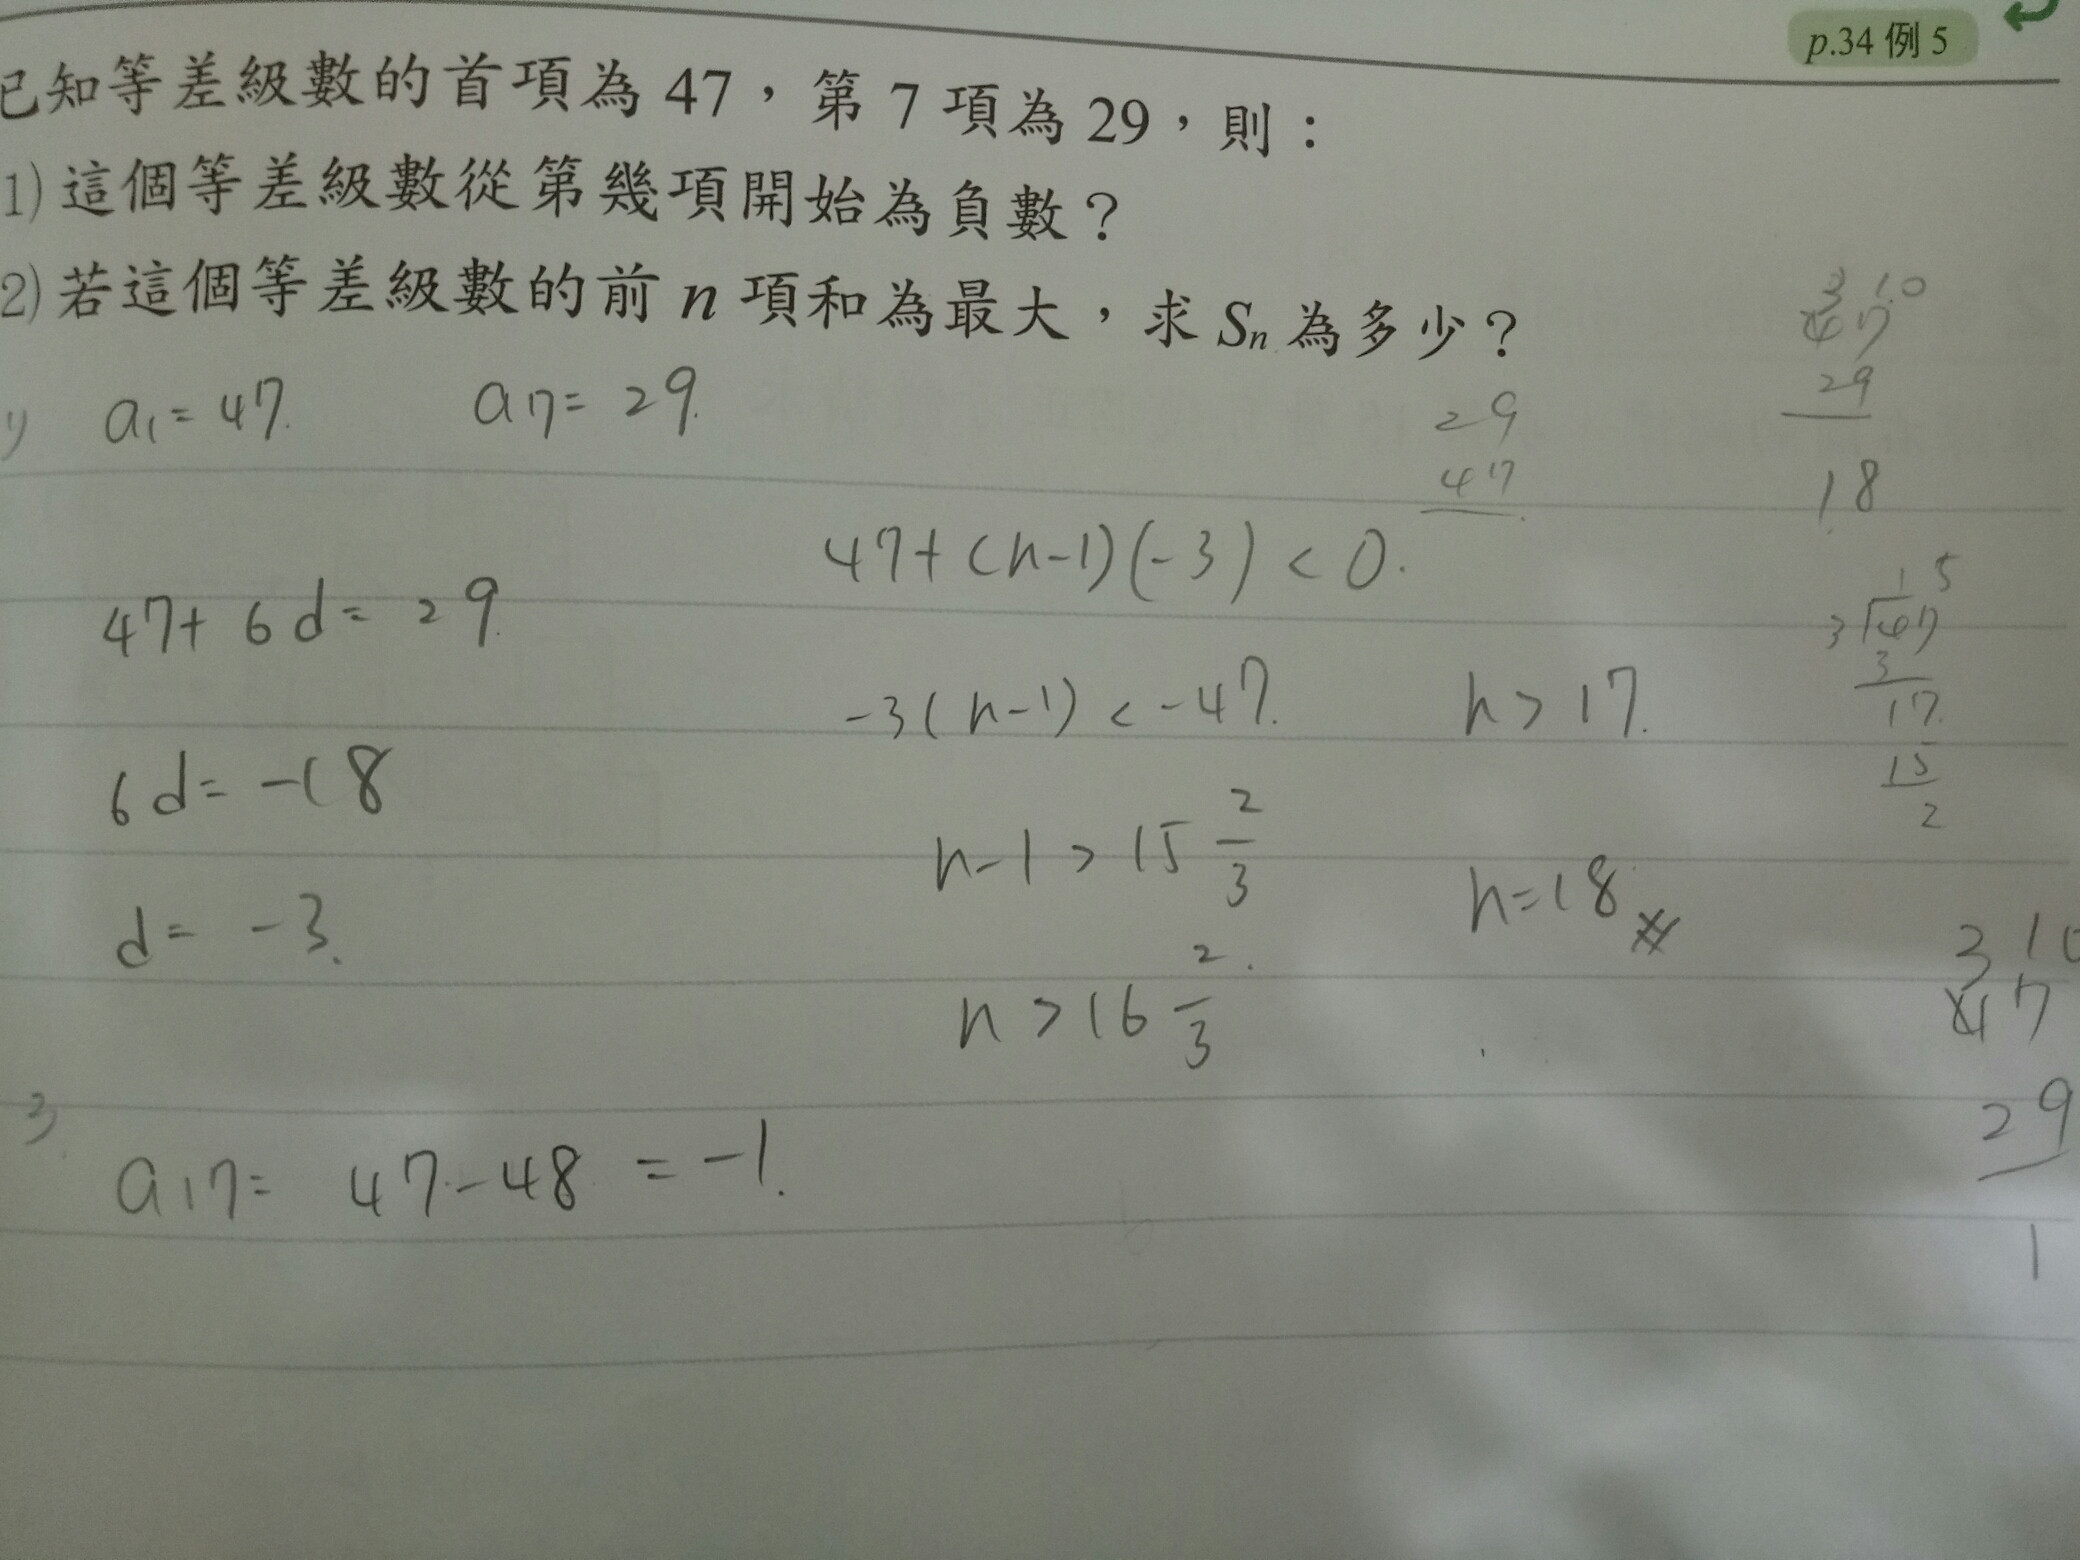 p.34 例 5
已知等差級數的首項為 47，第 7 項為 29，則：
1) 這個等差級數從第幾項開始為負數？
2) 若這個等差級數的前 n 項和為最大，求 Sn 為多少？
3 10
47
29
18
1) a1 = 47. a7 = 29.
29
47
47+(n-1)(-3) < 0.
47+ 6d = 29.
15
3 47
3
17
15
2
-3(n-1) < -47. n > 17.
6d = -18
n-1 > 15 2/3
n=18
d = -3.
n > 16 2/3
3 10
47
29
1
a17 = 47-48 = -1.